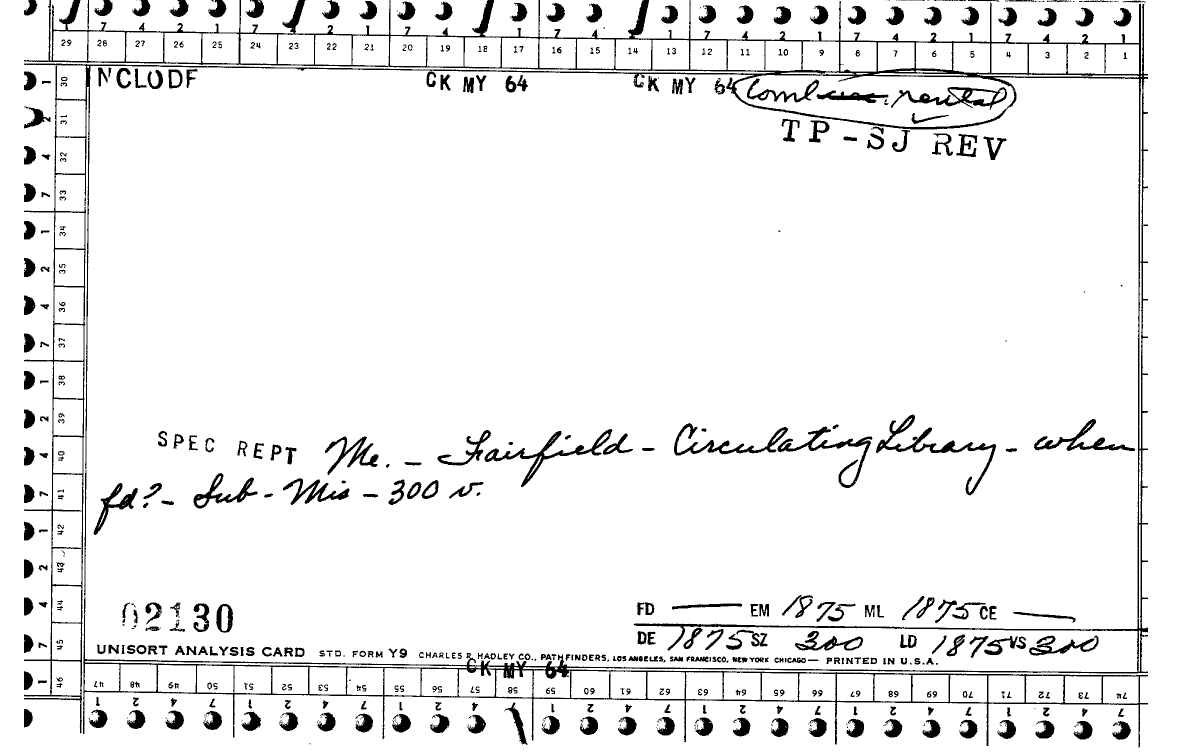 7 4 2 1 7 4 2 1 7 4 2 1 7 4 2 1 7 4 2 1 7 4 2 1
29 28 27 26 25 24 23 22 21 20 19 18 17 16 15 14 13 12 11 10 9 8 7 6 5 4 3 2 1
NCLODF CK MY 64 CK MY 64 rental
TP-SJ REV
1 30
2 31
4 32
7 33
1 34
2 35
4 36
7 37
1 38
2 39
4 40
7 41
1 42
2 43
4 44
7 45
1 46
SPEC REPT Me. - Fairfield - Circulating Library - when
fd? - Sub - Mis - 300 v.
02130
FD — EM 1875 ML 1875 CE —
DE 1875 SZ 300 LD 1875 VS 300
UNISORT ANALYSIS CARD STD. FORM Y9 CHARLES R. HADLEY CO., PATHFINDERS, LOS ANGELES, SAN FRANCISCO, NEW YORK CHICAGO — PRINTED IN U.S.A.
CK MY 64
47 48 49 50 51 52 53 54 55 56 57 58 59 60 61 62 63 64 65 66 67 68 69 70 71 72 73 74
1 2 4 7 1 2 4 7 1 2 4 7 1 2 4 7 1 2 4 7 1 2 4 7 1 2 4 7